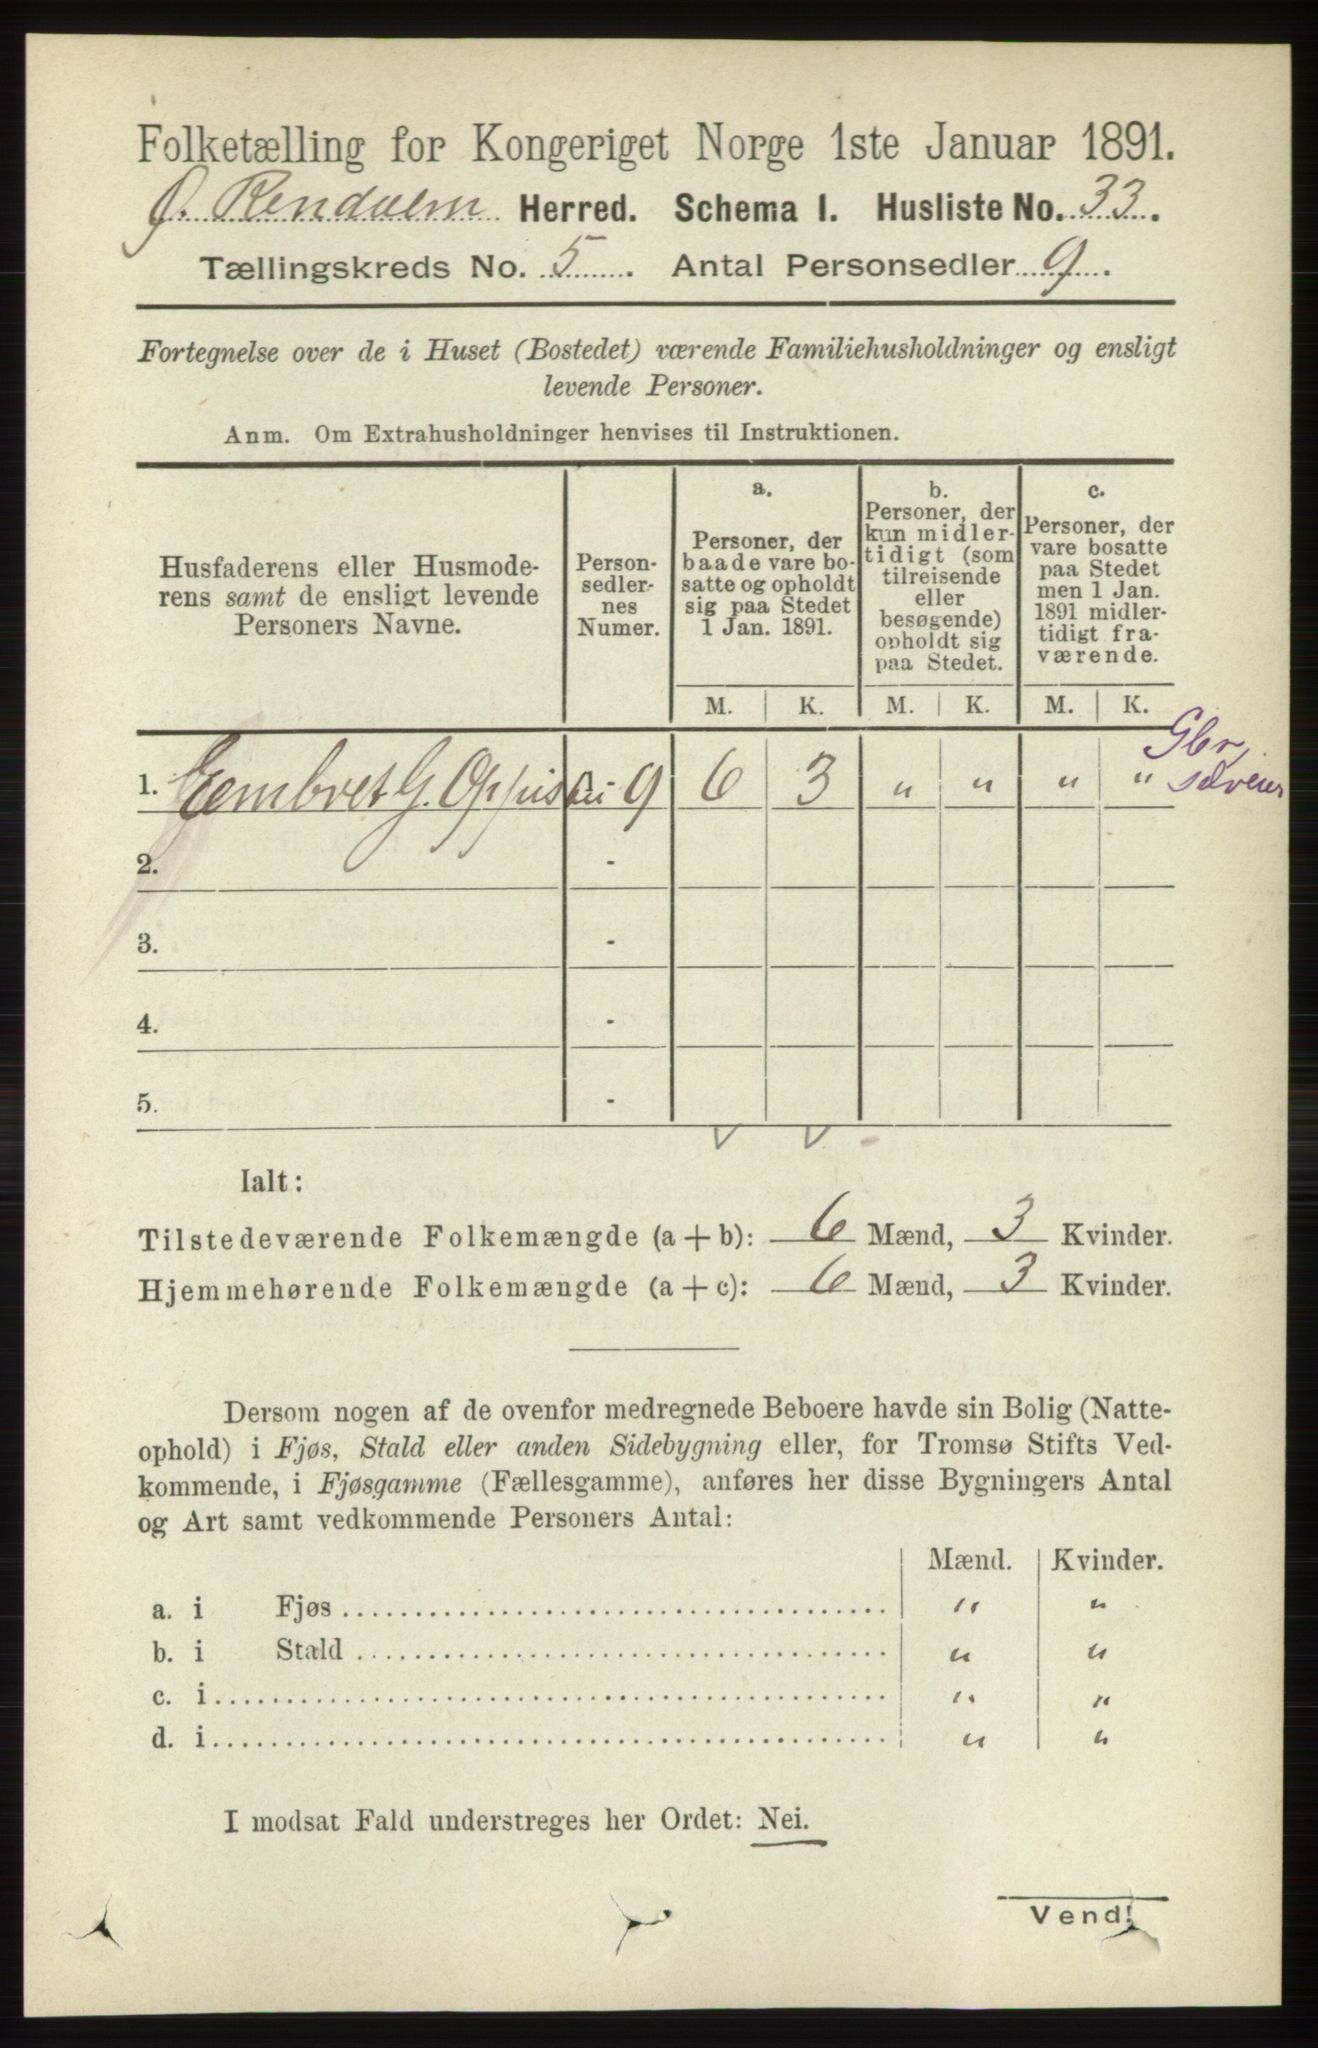 Folketælling for Kongeriget Norge 1ste Januar 1891.
Ø. Rendalen Herred. Schema I. Husliste No. 33.
Tællingskreds No. 5. Antal Personsedler 9.
Fortegnelse over de i Huset (Bostedet) værende Familiehusholdninger og ensligt
levende Personer.
Anm. Om Extrahusholdninger henvises til Instruktionen.
Husfaderens eller Husmode-
rens samt de ensligt levende
Personers Navne.
Person-
sedler-
nes
Numer.
a.
Personer, der
baade vare bo-
satte og opholdt
sig paa Stedet
1 Jan. 1891.
b.
Personer, der
kun midler-
tidigt (som
tilreisende
eller
besøgende)
opholdt sig
paa Stedet.
c.
Personer, der
vare bosatte
paa Stedet
men 1 Jan.
1891 midler-
tidigt fra-
værende.
M. K. M. K. M. K.
Gbr,
1. Gembret G. 1 9 6 3 " " " "
2. -
3. -
4. -
5. -
Ialt:
Tilstedeværende Folkemængde (a + b): 6 Mænd, 3 Kvinder.
Hjemmehørende Folkemængde (a + c): 6 Mænd, 3 Kvinder.
Dersom nogen af de ovenfor medregnede Beboere havde sin Bolig (Natte-
ophold) i Fjøs, Stald eller anden Sidebygning eller, for Tromsø Stifts Ved-
kommende, i Fjøsgamme (Fællesgamme), anføres her disse Bygningers Antal
og Art samt vedkommende Personers Antal:
Mænd. Kvinder.
a. i Fjøs " "
b. i Stald " "
c. i " "
d. i " "
I modsat Fald understreges her Ordet: Nei.
Vend!